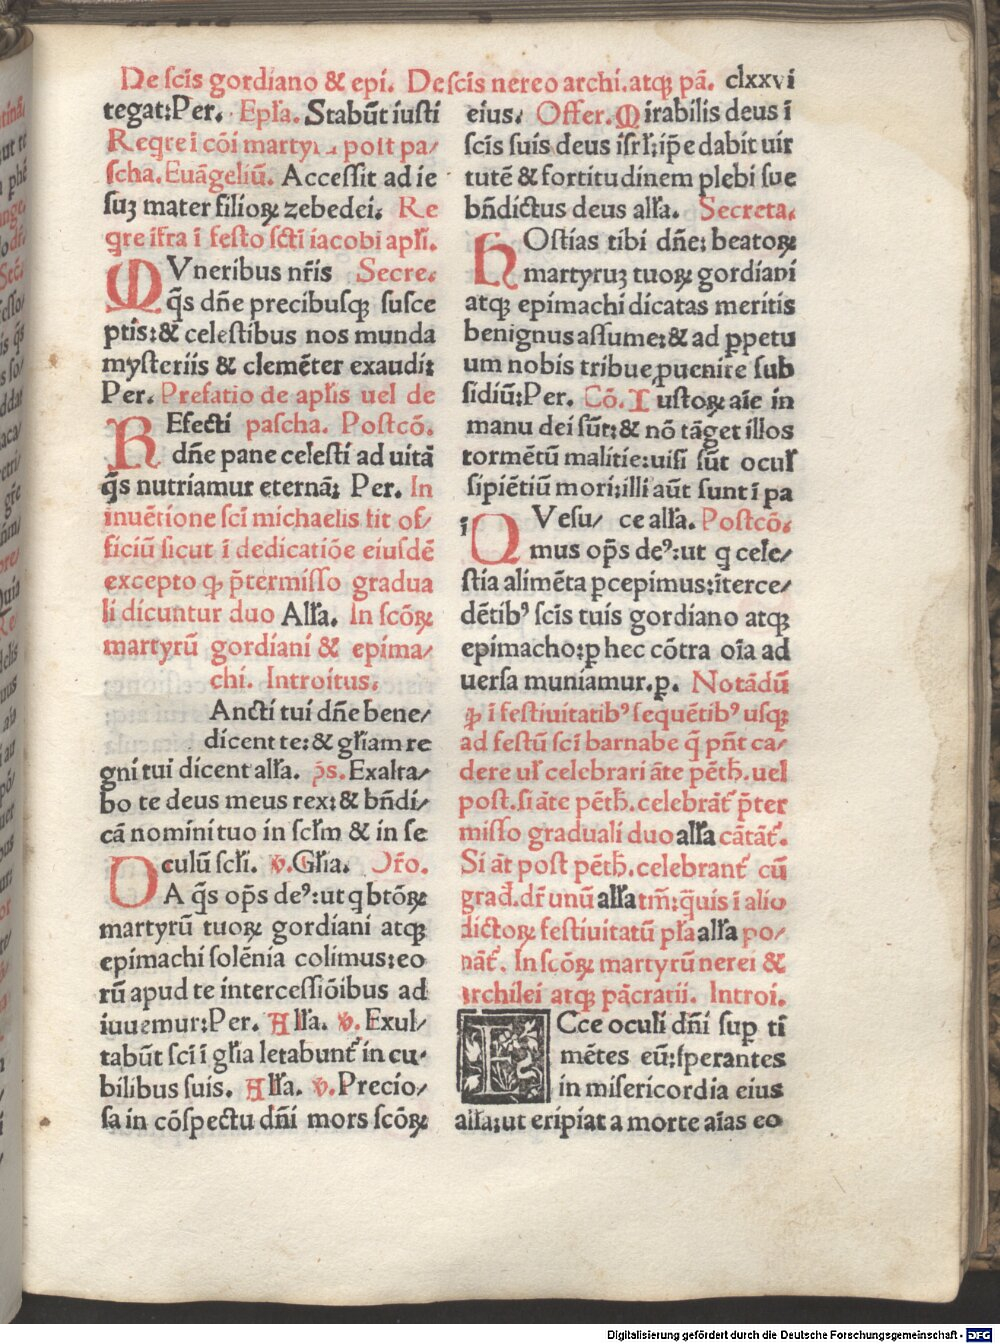 De scis gordiano & epi. De scis nereo archi. atqꝫ pā. clxxvi
tegat:Per. Epła. Stabūt iusti
Reqre ī cōi martyr post pa/
scha. Euāgeliū. Accessit ad ie
suꝫ mater filioꝝ zebedei. Re
qre īfra ī festo scti iacobi apłi.
MVneribus nr̄is Secre.
q̄s dn̄e precibusqꝫ susce
ptis:& celestibus nos munda
mysteriis & clemēter exaudi:
Per. Prefatio de aplis uel de
REfecti pascha. Postcō.
dn̄e pane celesti ad uitā
q̄s nutriamur eternā: Per. In
inuētione sci michaelis fit of/
ficiū sicut ī dedicatiōe eiusdē
excepto ꝙ p̄termisso gradua
li dicuntur duo Alła. In scōꝝ
martyrū gordiani & epima/
chi. Introitus.
Ancti tui dn̄e bene/
dicent te:& głiam re
gni tui dicent alła. ps. Exalta/
bo te deus meus rex:& bn̄di/
cā nomini tuo in sclm & in se
culū scli. v. Głia. Or̄o.
DA q̄s op̄s deꝰ:ut q btōꝝ
martyrū tuoꝝ gordiani atqꝫ
epimachi solēnia colimus:eo
rū apud te intercessiōibus ad
iuuemur:Per. Alła. v. Exul/
tabūt sci ī głia letabunt' in cu.
bilibus suis. Alła. v. Precio/
sa in cōspectu dn̄i mors scōꝝ
eius. Offer. Mirabilis deus ī
scis suis deus isrł:ip̄e dabit uir
tutē & fortitudinem plebi sue
bn̄dictus deus alła. Secreta.
HOstias tibi dn̄e: beatoꝝ
martyruꝫ tuoꝝ gordiani
atqꝫ epimachi dicatas meritis
benignus assume:& ad ꝑpetu
um nobis tribue puenire sub
sidiū:Per. Cō. Iustoꝝ aīe in
manu dei sūt:& nō tāget illos
tormētū malitie:uisi sūt ocuł
sipiētiū mori:illi aūt sunt ī pa
QVesu/ ce alła. Postcō.
mus op̄s deꝰ:ut q cele/
stia alimēta ꝑcepimus:īterce/
dētibꝰ scis tuis gordiano atqꝫ
epimacho:ꝑ hec cōtra oīa ad
uersa muniamur.ꝑ. Notādū
ꝙ ī festiuitatibꝰ sequētibꝰ usqꝫ
ad festū sci barnabe q̄ pn̄t ca/
dere uł celebrari āte pēth. uel
post. si āte pēth. celebrāt' p̄ter
misso graduali duo alła cātāt'.
Si āt post pēth. celebrant' cū
grad. dr̄ unū alła tm̄: q̄uis ī alio
dictoꝝ festiuitatū pła alła po/
nāt'. In scōꝝ martyrū nerei &
archilei atqꝫ pācratii. Introi.
ECce oculi dn̄i suꝑ ti
mētes eū:sperantes
in misericordia eius
alła:ut eripiat a morte aīas eo
Digitalisierung gefördert durch die Deutsche Forschungsgemeinschaft - DFG